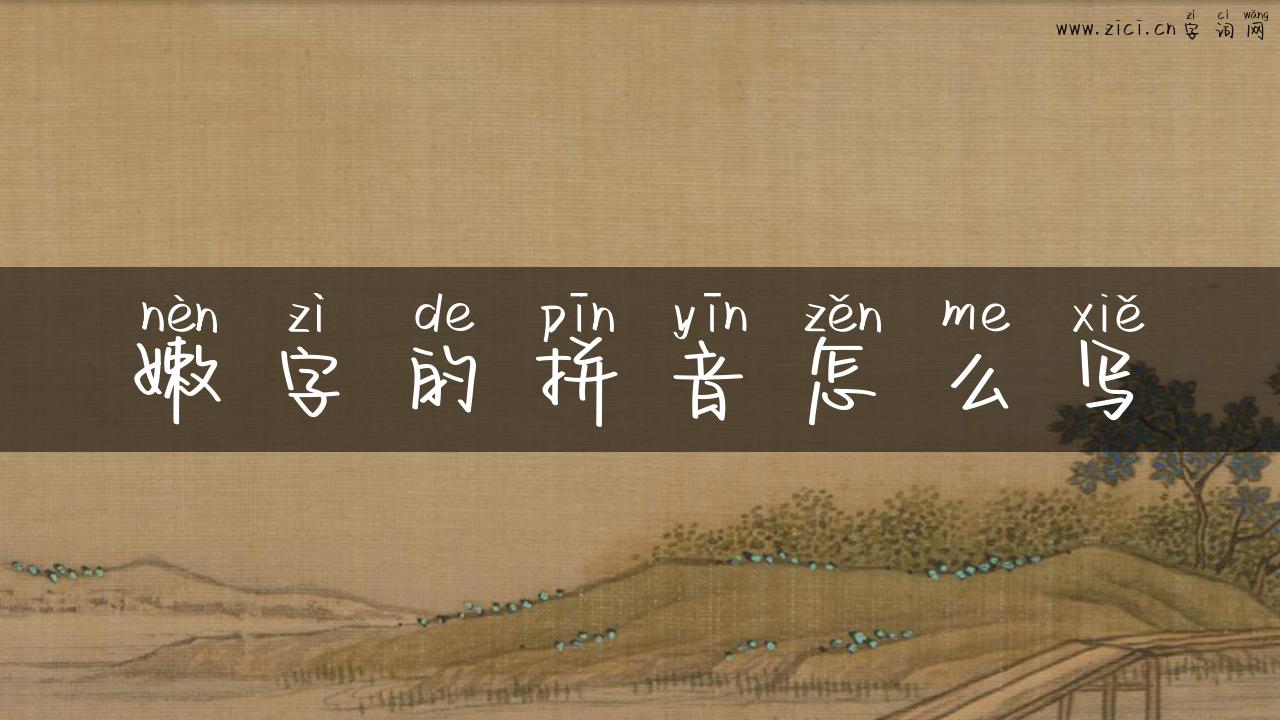 zì cí wǎng
www.zici.cn字词网
nèn zì de pīn yīn zěn me xiě
嫩字的拼音怎么写